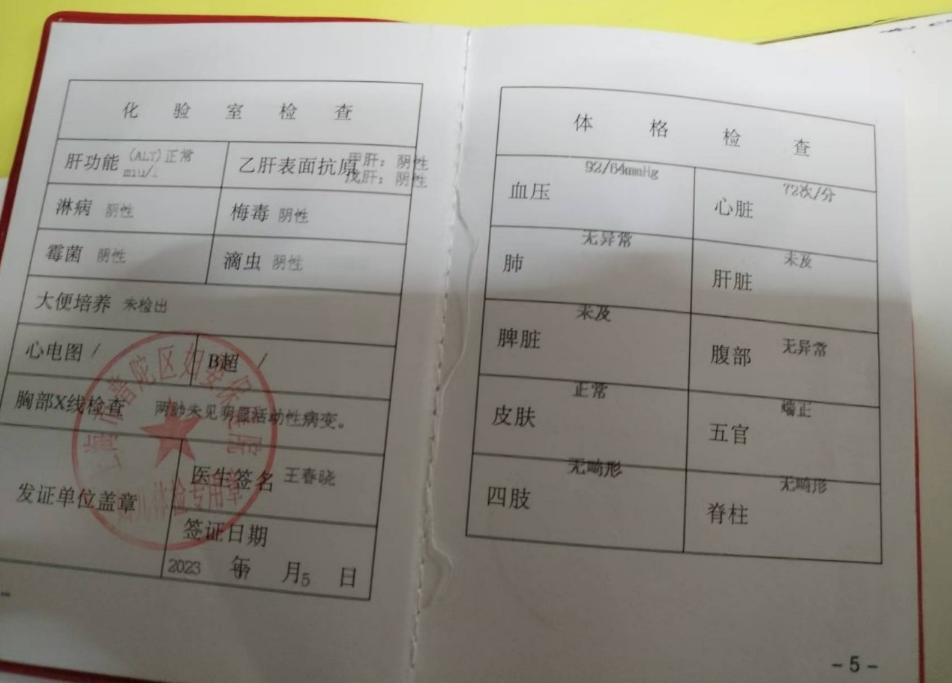 化验室检查
肝功能 (ALT)正常
乙肝表面抗原 甲肝：阴性
戊肝：阴性
淋病 阴性 梅毒 阴性
霉菌 阴性 滴虫 阴性
大便培养 未检出
心电图 / B超 /
胸部X线检查 两肺未见明显活动性病变。
发证单位盖章
医生签名 王春晓
签证日期
2023 年 月5 日
普陀区妇婴保
体格检查
血压 92/64mmHg 心脏 72次/分
肺 无异常 肝脏 未及
脾脏 未及 腹部 无异常
皮肤 正常 五官 端正
四肢 无畸形 脊柱 无畸形
- 5 -